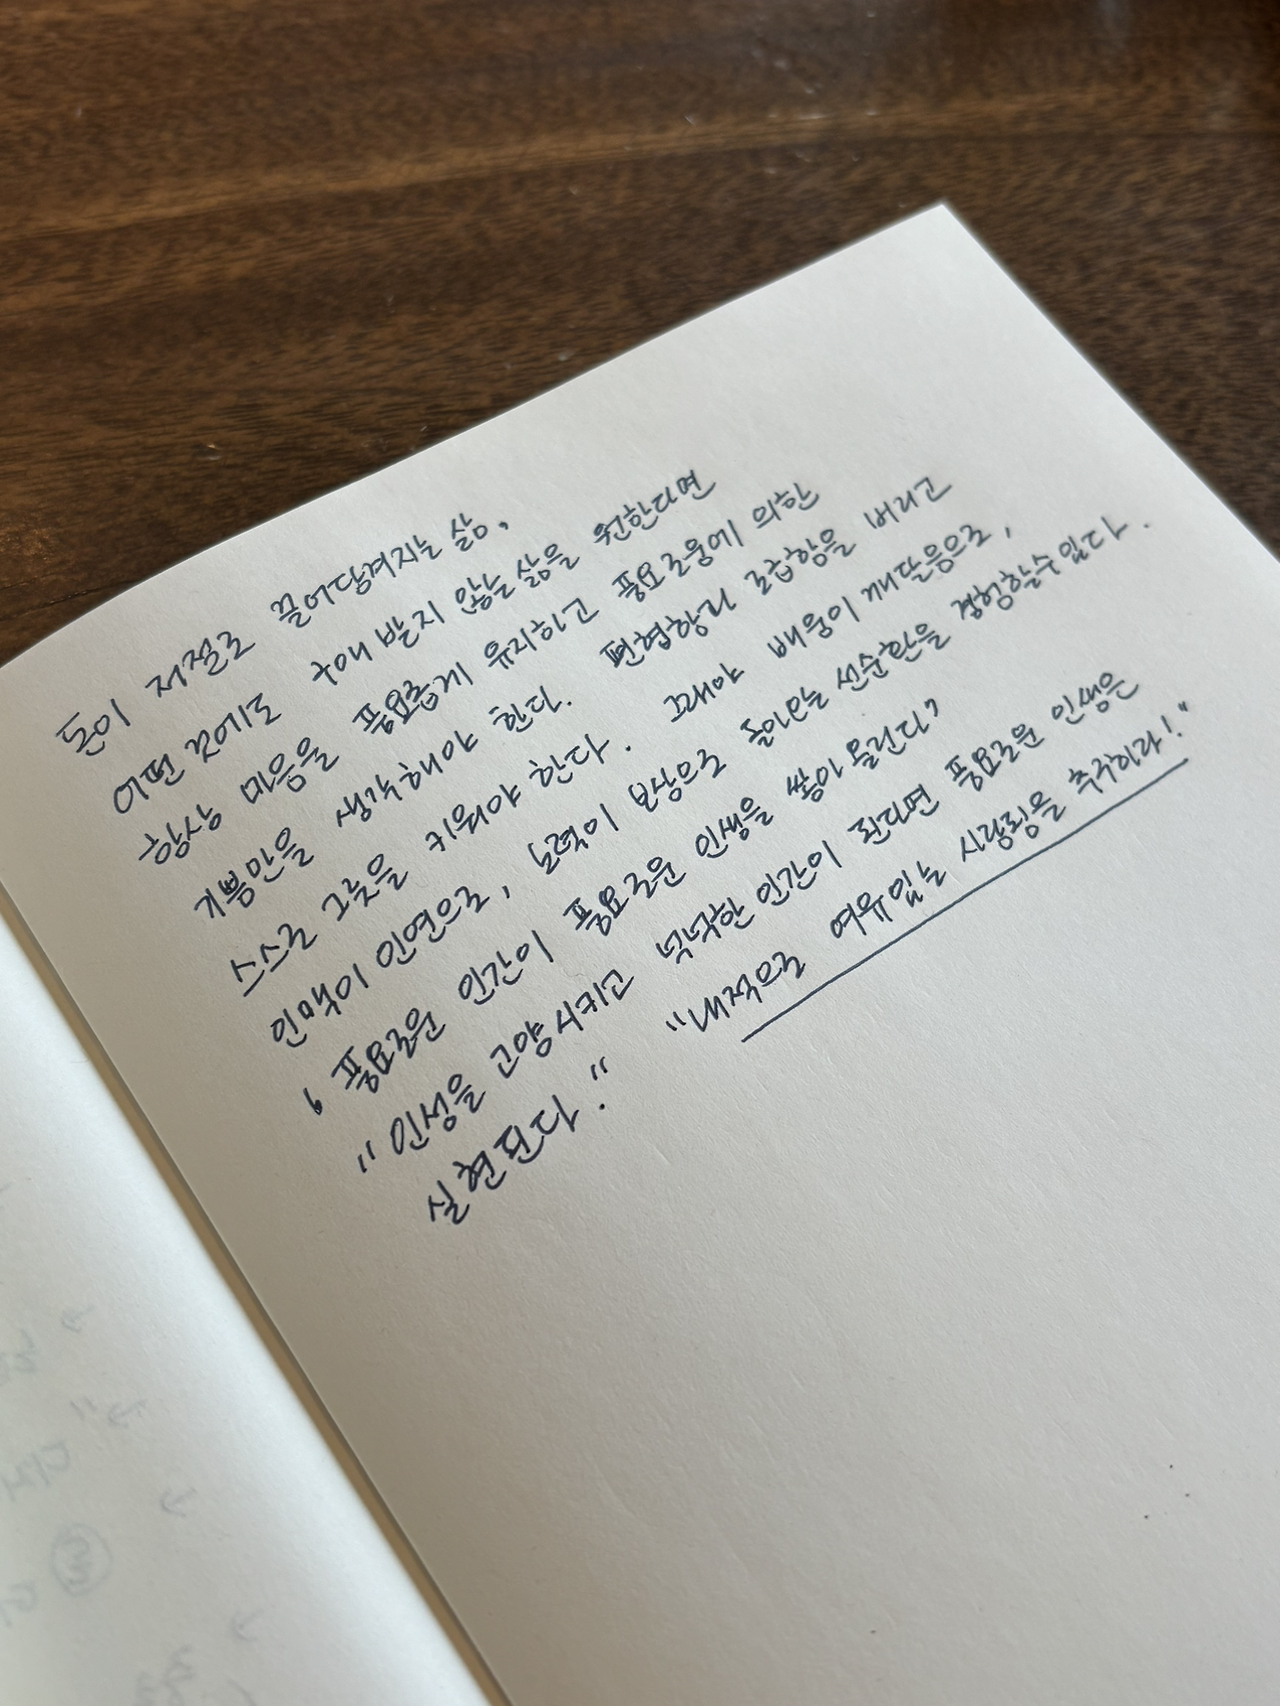 돈이 저절로 끌어당겨지는 삶,
어떤 것에도 구애 받지 않는 삶을 원한다면
항상 마음을 풍요롭게 유지하고 풍요로움에 의한
기쁨만을 생각해야 한다. 편협함과 조급함을 버리고
스스로 그릇을 키워야 한다. 그래야 배움이 깨달음으로,
인맥이 인연으로, 노력이 보상으로 돌아오는 선순환을 경험할수 있다.
' 풍요로운 인간이 풍요로운 인생을 쌓아 올린다'
" 인성을 고양시키고 넉넉한 인간이 된다면 풍요로운 인생은
실현된다. " "내적으로 여유있는 사람됨을 추구하라!"